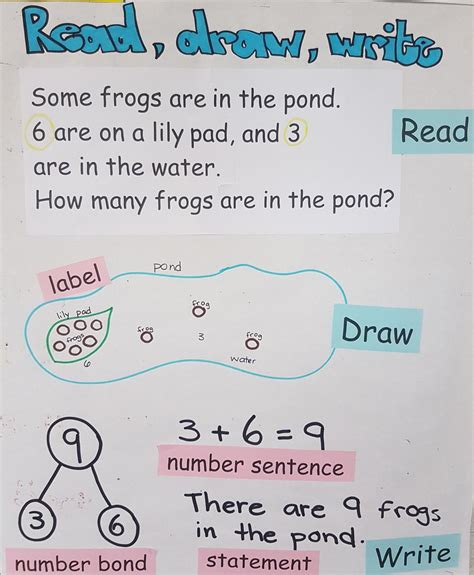 Read, draw, write
Some frogs are in the pond.
6 are on a lily pad, and 3
are in the water.
How many frogs are in the pond?
Read
label
pond
lily pad
frogs
6
frog
frog
3
frog
water
Draw
9
3
6
number bond
3 + 6 = 9
number sentence
There are 9 frogs
in the pond.
statement
Write